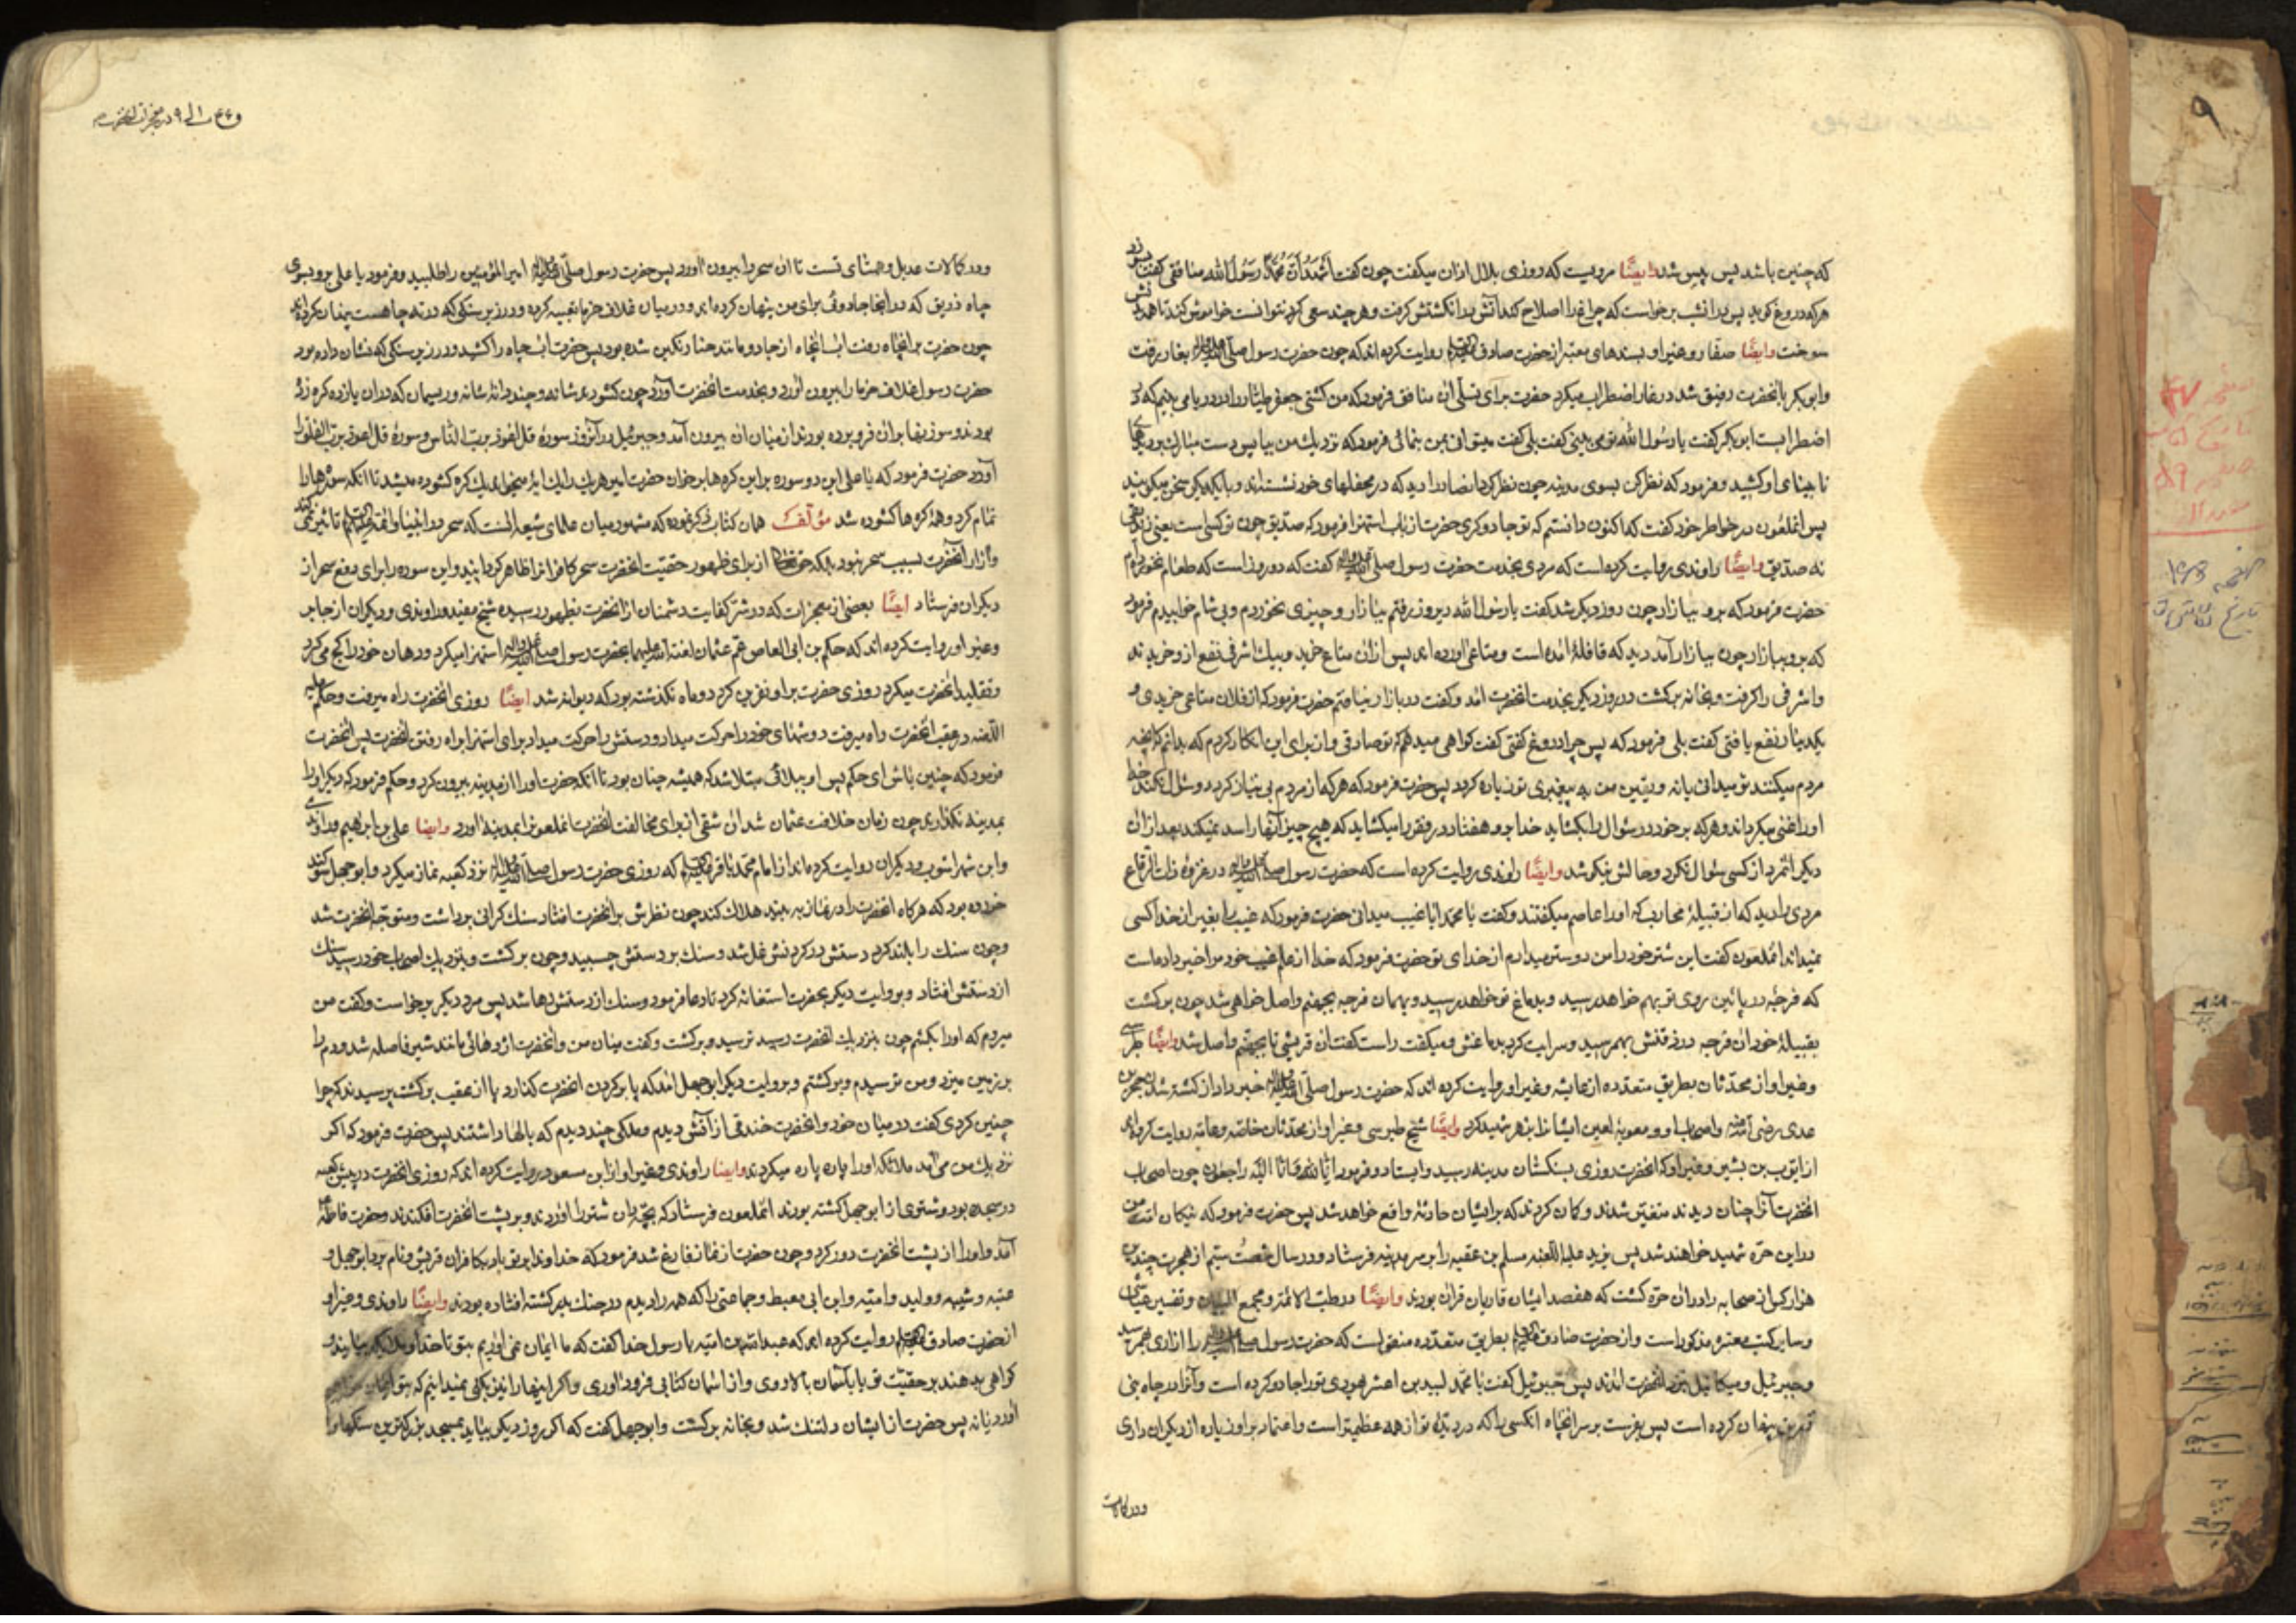 که چنین باشد پس پیس شد وایضًا مرویست که روزی بلال اذان میگفت چون گفت اشهد ان محمدًا رسول الله منافقی گفت بسوزد
هرکه دروغ گوید پس در انشب برخواست که چراغ را اصلاح کند آتش در انگشتش گرفت و هر چند سعی کرد نتوانست خواموش کند تا همه
سوخت وایضًا صفار و غیر او بسندهای معتبر از حضرت صادق روایت کرده اند که چون حضرت رسول صلی الله علیه واله بغار رفت
وابو بکر با انحضرت رفیق شد در غار اضطراب میکرد حضرت برای تسلی ان منافق فرمود که من کشتی جعفر طیار را در دریا می بینم که در
اضطرابست ابو بکر گفت یا رسول الله تو می بینی گفت بلی گفت میتوانی بمن بنمائی فرمود که نزدیك من بیا پس دست مبارك بر دیدهای
نابینای او کشید و فرمود که نظر کن بسوی مدینه چون نظر کرد انصار را دید که در محفلهای خود نشسته اند و با یکدیگر سخن میگویند
پس انملعون در خواطر خود گفت که اکنون دانستم که تو جادوگری حضرت از باب استهزا فرمود که صدیق چون تو کسی است یعنی زندیقی
نه صدیق وایضًا راوندی روایت کرده است که مردی بخدمت حضرت رسول صلی الله علیه واله گفت که دو روز است که طعام نخورده ام
حضرت فرمود که برو ببازار چون روز دیگر شد گفت یا رسول الله دیروز رفتم ببازار و چیزی نخوردم و بی شام خوابیدم فرمود
که برو ببازار چون ببازار آمد دید که قافلهٔ امده است و متاعی اورده اند پس از ان متاع خرید و بیك اشرفی نفع از او خریدند
و اشرفی را گرفت و بخانه برگشت و روز دیگر بخدمت انحضرت امد و گفت در بازار نیافتم حضرت فرمود که از فلان متاعی خریدی و
یکدینار نفع یافتی گفت بلی فرمود که پس چرا دروغ گفتی گفت گواهی میدهم که تو صادقی و از برای این انکار کردم که بدانم که انچه
مردم میکنند تو میدانی یا نه و یقین من به پیغمبری تو زیاده گردد پس حضرت فرمود که هر که از مردم بی نیاز گردد و سئوال نکند خدا
او را غنی میگرداند و هر که بر خود در سئوال را بگشاید خدا بر او هفتاد در فقر را میگشاید که هیچ چیز آنها را سد نمیکند بعد از ان
دیگر انمرد از کسی سئوال نکرد و حالش نیکو شد وایضًا راوندی روایت کرده است که حضرت رسول صلی الله علیه واله در غزوهٔ ذات الرقاع
مردی را دید که از قبیلهٔ محارب که او را عاصم میگفتند و گفت یا محمد ایا غیب میدانی حضرت فرمود که غیب را بغیر از خدا کسی
نمیداند انملعون گفت این شتر خود را من دوستر میدارم از خدای تو حضرت فرمود که خدا از علم غیب خود مرا خبر داده است
که قرحهٔ در پائین روی تو بهم خواهد رسید و بدماغ تو خواهد رسید و بهمان قرحه بجهنم واصل خواهی شد چون برگشت
بقبیلهٔ خود ان قرحه در ذقنش بهمرسید و سرایت کرد بدماغش و میگفت راست گفت ان قریشی تا بجهنم واصل شد وایضًا طبرسی
و غیر او از محدثان بطریق متعدده از عایشه و غیر او روایت کرده اند که حضرت رسول صلی الله علیه واله خبر داد از کشته شدن حجر بن
عدی رضی الله عنه واصحاب او و معویهٔ لعین ایشانرا بزهر شهید کرد وایضًا شیخ طبرسی و غیر او از محدثان خاصه و عامه روایت کرده اند
از ایوب بن بشیر و غیر او که انحضرت روزی بسنگستان مدینه رسید وایستاد و فرمود انا لله وانا الیه راجعون چون اصحاب
انحضرت آنرا چنان دیدند متغیر شدند و گمان کردند که بر ایشان حادثهٔ واقع خواهد شد پس حضرت فرمود که نیکان امت من
در این حره شهید خواهند شد پس یزید علیه اللعنه مسلم بن عقبه را بر سر مدینه فرستاد و در سال شصت سیم از هجرت چندین
هزار کس از صحابه را در ان حره کشت که هفصد ایشان قاریان قران بودند وایضًا در طب الائمه و مجمع البیان و تفسیر عیاشی
و سایر کتب معتبره مذکور است و از حضرت صادق بطریق متعدده منقولست که حضرت رسول صلی الله علیه واله را ازاری بهمرسید
و جبرئیل و میکائیل بنزد انحضرت امدند پس جبرئیل گفت یا محمد لبید بن اعصم یهودی تو را جادو کرده است و آنرا در چاه بنی
زریق پنهان کرده است پس بفرست بر سر انچاه انکسی را که در دیدهٔ تو از همه عظیمتر است و اعتماد بر او زیاده از دیگران داری
ودر کمالات
و در کمالات عدیل و همتای تست تا ان سحر را بیرون اورد پس حضرت رسول صلی الله علیه واله امیر المؤمنین را طلبید و فرمود یا علی برو بسوی
چاه ذریق که در انجا جادوئی برای من پنهان کرده اند و در میان غلاف خرما تعبیه کرده و در زیر سنگی که در ته چاهست پنهان کرده اند
چون حضرت بر انچاه رفت اب انچاه از جادو مانند حنا رنگین شده بود پس حضرت اب چاه را کشید و در زیر سنگی که نشان داده بود
حضرت رسول غلاف خرما را بیرون آورد و بخدمت انحضرت آورد چون گشود شانه و چند دانهٔ شانه و ریسمان که در ان یازده گره زده
بودند و سوزنها بر ان فرو برده بودند از میان ان بیرون آمد و جبرئیل در آنروز سورهٔ قل اعوذ برب الناس و سورهٔ قل اعوذ برب الفلق را
آورد حضرت فرمود که یا علی این دو سوره بر این گره ها بخوان حضرت امیر هر یك از ایه میخواند یك گره گشوده میشد تا انکه سوره ها را
تمام کرد و همهٔ گره ها گشوده شد مؤلف همان کتاب ذکر نموده که مشهور میان علمای شیعه انست که سحر در انبیا وائمه تاثیر نمی کند
و ازار انحضرت بسبب سحر نبود بلکه حقتعالی از برای ظهور حقیت انحضرت سحر کافر انرا ظاهر گردانید و این سوره را برای دفع سحر از
دیگران فرستاد ایضًا بعضی از معجزات که در شر کفایت دشمنان از انحضرت بظهور رسیده شیخ مفید و راوندی و دیگران از جابر
و غیر او روایت کرده اند که حکم بن ابی العاص عم عثمان لعنة الله علیهما بحضرت رسول صلی الله علیه واله استهزا میکرد و دهان خود را کج می کرد
و تقلید انحضرت میکرد روزی حضرت بر او نفرین کرد دو ماه نگذشته بود که دیوانه شد ایضًا روزی انحضرت راه میرفت و حکم علیه
اللعنه در عقب انحضرت راه میرفت دوشهای خود را حرکت میداد و دستش را حرکت میداد برای استهزا براه رفتن انحضرت پس انحضرت
فرمود که چنین باش ای حکم پس او ببلائی مبتلا شد که همیشه چنان بود تا انکه حضرت او را از مدینه بیرون کرد و حکم فرمود که دیگر او را
بمدینه نگذارند چون زمان خلافت عثمان شد ان شقی از برای مخالفت انحضرت انملعون را بمدینه اورد وایضا علی بن ابراهیم و راوندی
وابن شهراشوب و دیگران روایت کرده اند از امام محمد باقر که روزی حضرت رسول صلی الله علیه واله نزد کعبه نماز میکرد و ابو جهل سوگند
خورده بود که هر گاه انحضرت را در نماز به بیند هلاك کند چون نظرش بر انحضرت افتاد سنك گرانی برداشت و متوجه انحضرت شد
و چون سنك را بلند کرد دستش در گردنش غل شد و سنك بر دستش چسبید و چون برگشت و بنزدیك اصحاب خود رسید سنك
از دستش افتاد و بروایت دیگر بحضرت استغاثه کرد تا دعا فرمود و سنك از دستش رها شد پس مرد دیگر برخواست و گفت من
میروم که او را بکشم چون بنزدیك انحضرت رسید ترسید و برگشت و گفت میان من و انحضرت اژدهائی مانند شیر فاصله شد و دم را
بر زمین میزد و من ترسیدم و برگشتم و بروایت دیگر ابو جهل امد که پا بر گردن انحضرت گذارد پا از عقب برگشت پرسیدند که چرا
چنین کردی گفت در میان خود و انحضرت خندقی از آتش دیدم و ملکی چند دیدم که بالها داشتند پس حضرت فرمود که اگر
نزدیك من می آمد ملائکه او را پاره پاره میکردند وایضا راوندی و غیر او از ابن مسعود روایت کرده اند که روزی انحضرت در پیش کعبه
در سجده بود و شتری از ابو جهل کشته بودند انملعون فرستاد که بچه دان شتر را اوردند و بر پشت انحضرت افکندند و حضرت فاطمه
آمد و او را از پشت انحضرت دور کرد و چون حضرت از نماز فارغ شد فرمود که خداوندا بر تو باد بکافران قریش و نام برد ابو جهل و
عتبه و شیبه و ولید و امیه و ابن ابی معیط و جماعتی را که همه را دیدم در جنك بدر کشته افتاده بودند وایضًا راوندی و غیر او
از حضرت صادق روایت کرده اند که عبدالله بن امیه با رسول خدا گفت که ما ایمان نمی اوریم بتو تا خدا و ملائکه بیارند و
گواهی بدهند بر حقیت تو یا بآسمان بالا روی و از اسمان کتابی فرود اوری و اگر اینها را نیز بکنی نمیدانیم که بتو ایمان خواهیم
آورد یا نه پس حضرت از ایشان دلتنك شد و بخانه برگشت و ابو جهل گفت که اگر روز دیگر بیاید بمسجد بزرگترین سنگها را